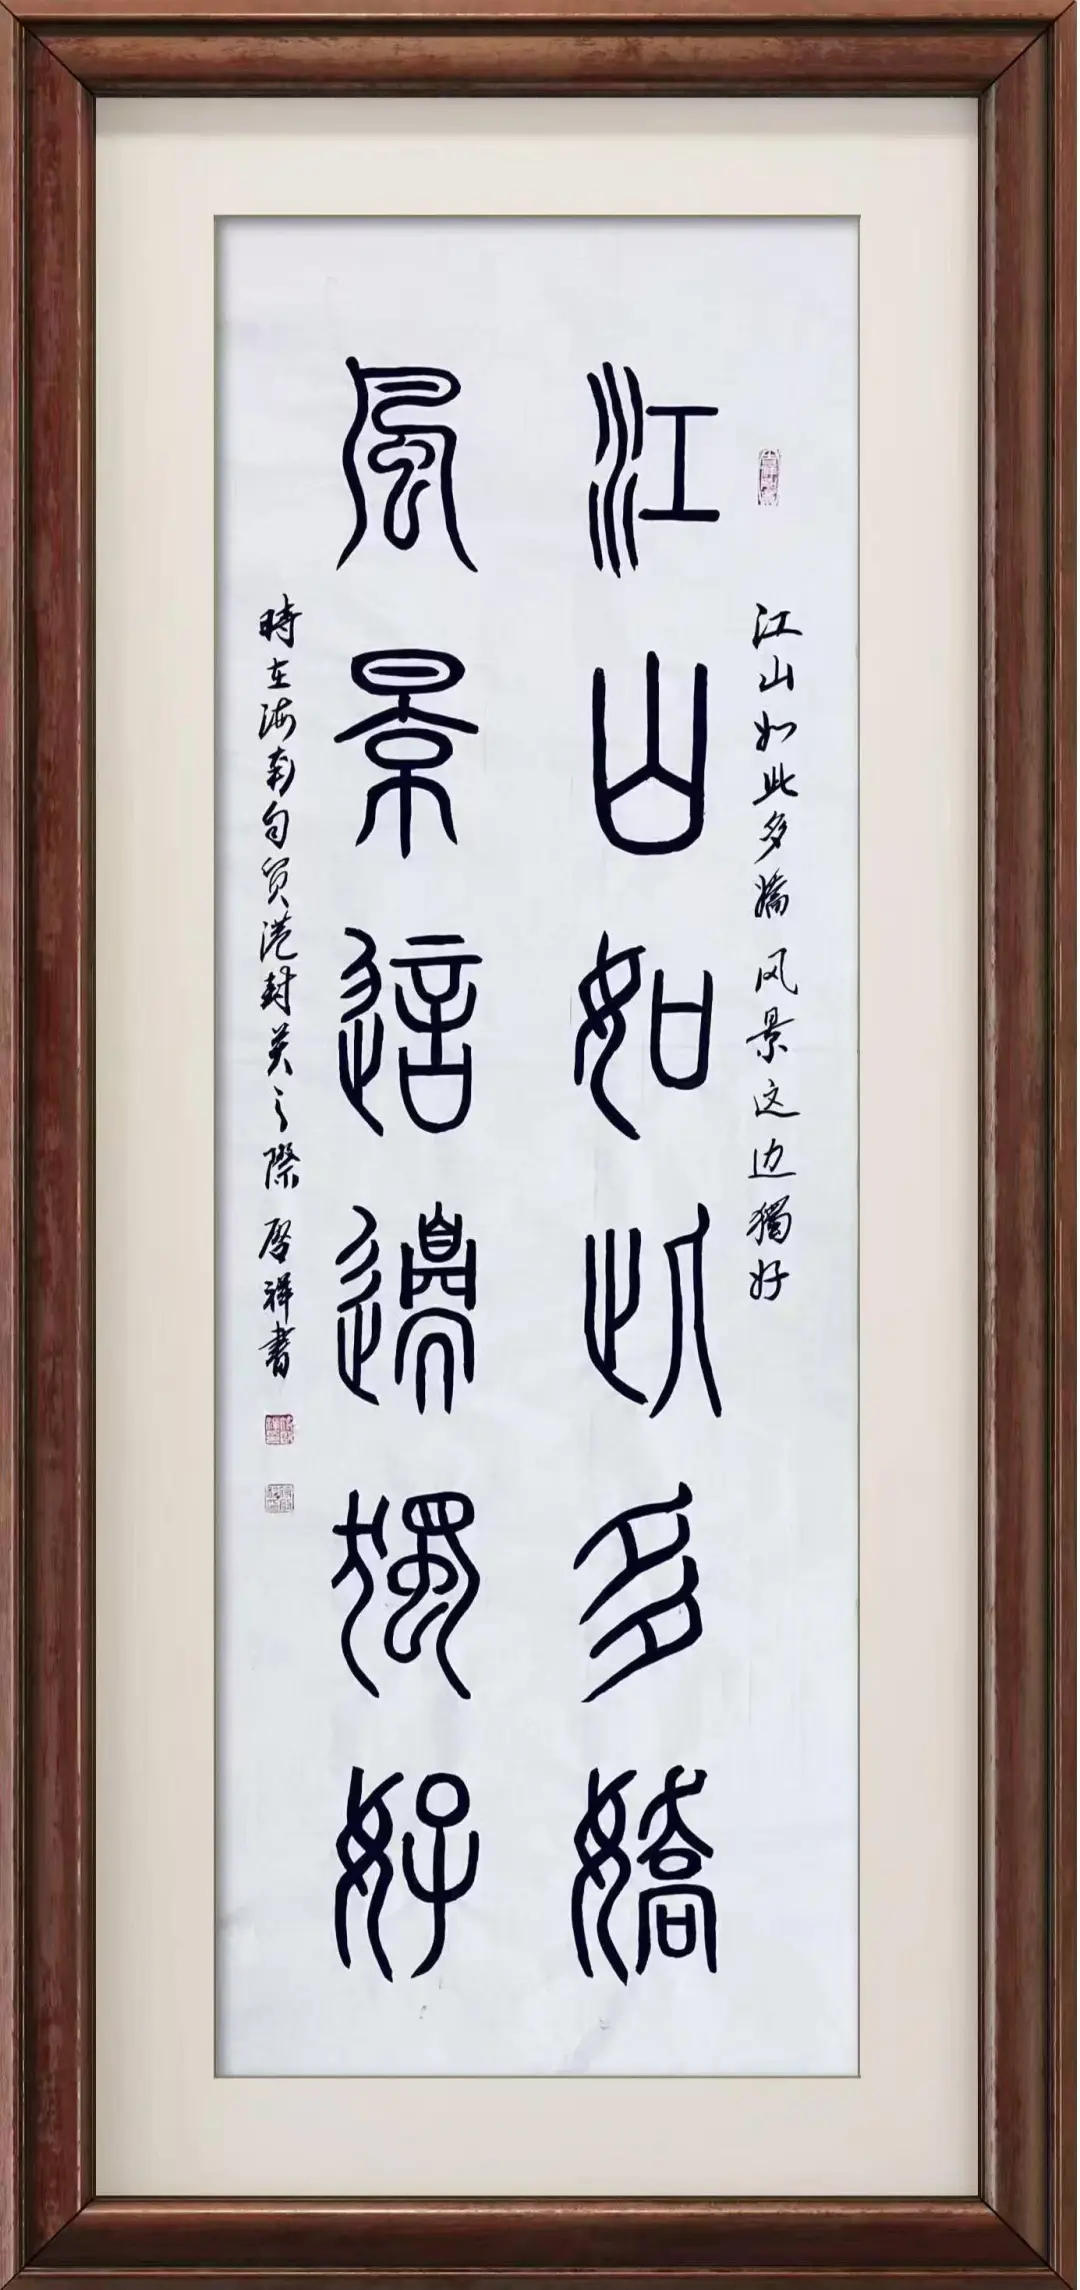 江山如此多嬌 风景这边獨好
江山如此多嬌
風景這邊獨好
時在海南自貿港封关之際 啓祥書